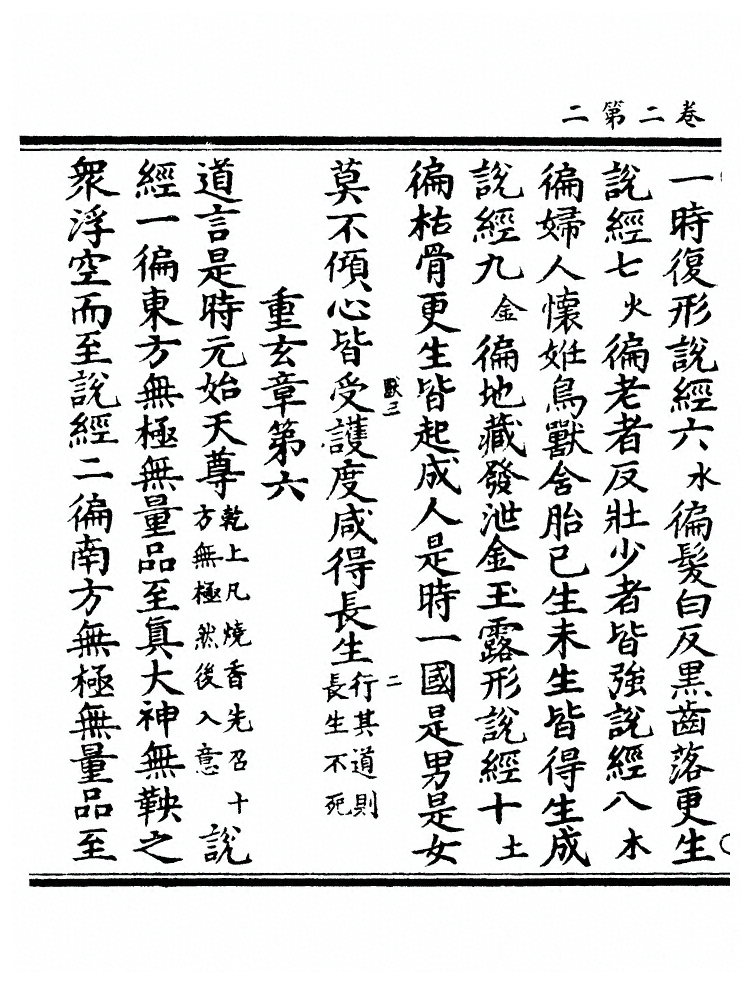 卷二第二
一時復形說經六水徧髮白反黑齒落更生
說經七火徧老者反壯少者皆強說經八木
徧婦人懷姙鳥獸含胎已生未生皆得生成
說經九金徧地藏發泄金玉露形說經十土
徧枯骨更生皆起成人是時一國是男是女
獸三
二
莫不傾心皆受護度咸得長生行其道則長生不死
重玄章第六
道言是時元始天尊乾上凡燒香先召十方無極然後入意說
經一徧東方無極無量品至真大神無鞅之
眾浮空而至說經二徧南方無極無量品至